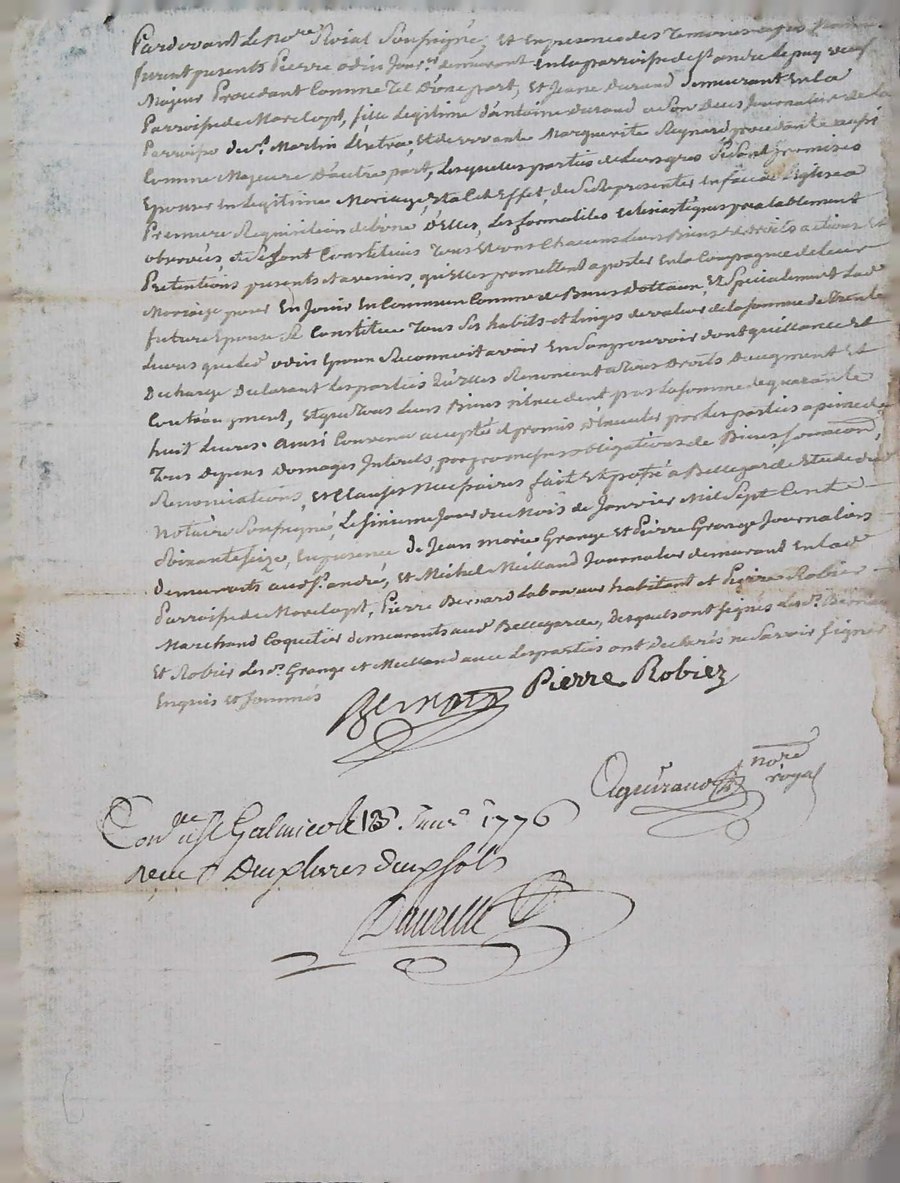 Pardevant Le No.re Roial Soussigné, Et En presence des Temoins
furent presents Pierre odin Jour.er demeurant En la parroisse de S.t andre Le puy
Majeur Procedant Comme Tel D'une part, Et Jeane Durand demeurant En La
Parroisse de Marclopt, fille Legitime d'antoine Durand a Son Deces Journalier De La
Parroisse de S.t Martin Létra, Et de vivante Marguerite Reynard procedante aussi
Comme Majeure D'autre part, Lesquelles parties de Leurs gres Se Sont promises
Epouser En Legitime Mariage Et a Cet Effet, de Se Representer En face de L'Eglise a
Premiere Requisition de L'une D'Elles, Les formalites Eclesiastiques prealablement
observées, et Se Sont Constitués Tous Et uns Chacuns Leurs Biens Et droits actions Et
Pretentions presents et avenirs, qu'Elles promettent aporter En la Compagnie de Leur
Mariage pour En Jouir En Commun Comme de Biens Dottaux, Et Specialement Lad.
future Epouse Se Constitue Tous Ses habits et Linges de valeur de La Somme de Trente
Livres que Led. odin Epoux Reconnoit avoir En Son pouvoir dont quittance Et
Decharge Declarant Les parties qu'Elles Renoncent a Tous Droits D'augment Et
Contr'augment, Et que Tous Leurs Biens n'Excedent pas La Somme de quarante
huit Livres. ainsi Convenu accepté et promis Executer par Les parties a peine de
Tous Depens Domages Interets, par promesses obligations de Biens Soumissions,
Renonciations, Et Clauses necessaires fait Et passé a Bellegarde Etude du
Notaire Soussigné, Le Sixieme Jour du Mois de Janvier Mil Sept Cent
Soixante Seize, En presence de Jean Marie Grange et Pierre Grange Journaliers
demeurants aud. S.t andré, Et Michel Meilland Journalier demeurand En lad.
Parroisse de Marclopt, Pierre Bernard Laboureur habitant et Pierre Robier
Marchand Coquetier demeurants aud. Bellegarde, desquels ont Signés Les d.s Bernard
Et Robier Les d.s Grange et Meilland avec Les parties ont Declarés ne Savoir Signer
Enquis et Sommés
Bernard Pierre Robiez
Aguiraud no.re royal
Con.lé a S.t Galmier le 13 Janv.r 1776
reçu
Daurelle